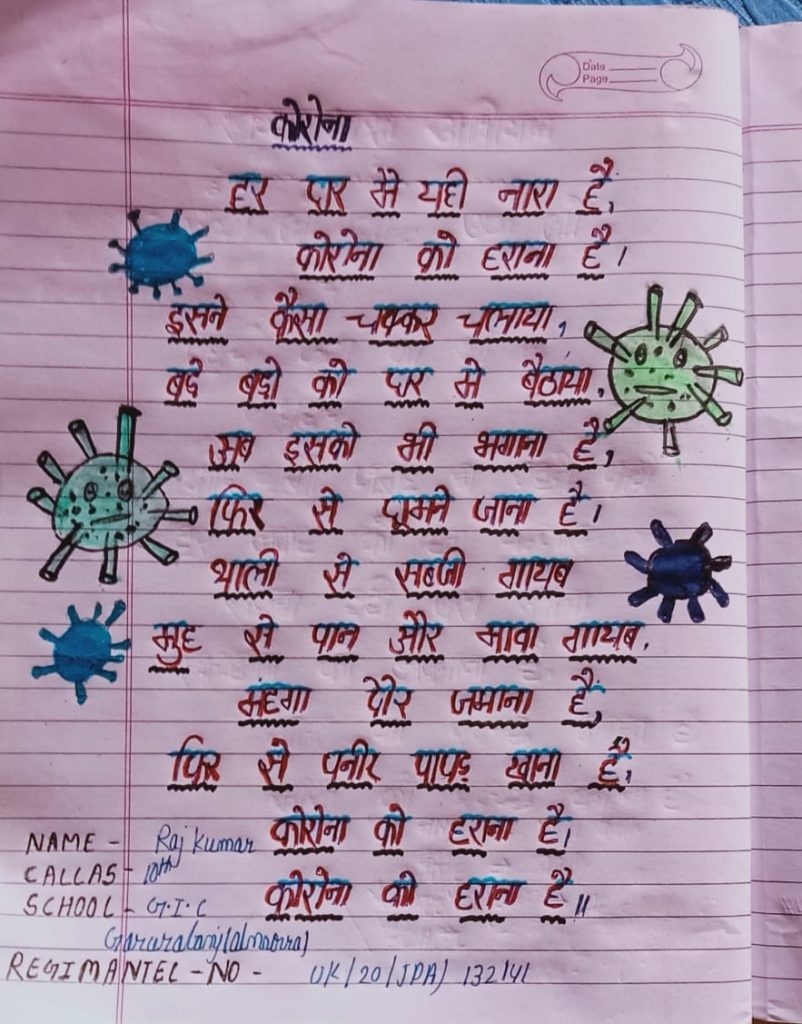 Date
Page
कोरोना
हर घर मे यही नारा है,
कोरोना को हराना है।
इसने कैसा चक्कर चलाया,
बडे बडो को घर मे बैठाया,
अब इसको भी भगाना है,
फिर से घूमने जाना है।
थाली से सब्जी गायब
मुह से पान और मावा गायब,
मंहगा दौर जमाना है,
फिर से पनीर पापड़ खाना है,
कोरोना को हराना है।
कोरोना को हराना है॥
NAME - Raj Kumar
CALLAS - 10th
SCHOOL - G.I.C
(almoora)
REGIMANTEL - NO - UK/20/JDA/ 132141